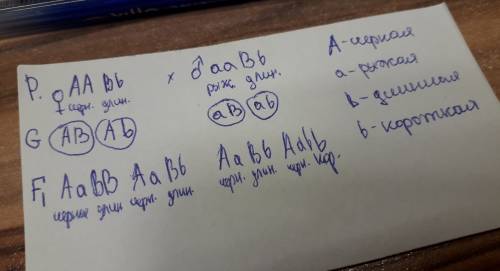 P. ♀ AA Bb × ♂ aaBb
черн. длин. рыж. длин.
G AB Ab aB ab
F₁ AaBB AaBb AaBb Aabb
черные длин черн. длин. черн. длин. черн. кор.
A-черная
a-рыжая
B-длинная
b-короткая